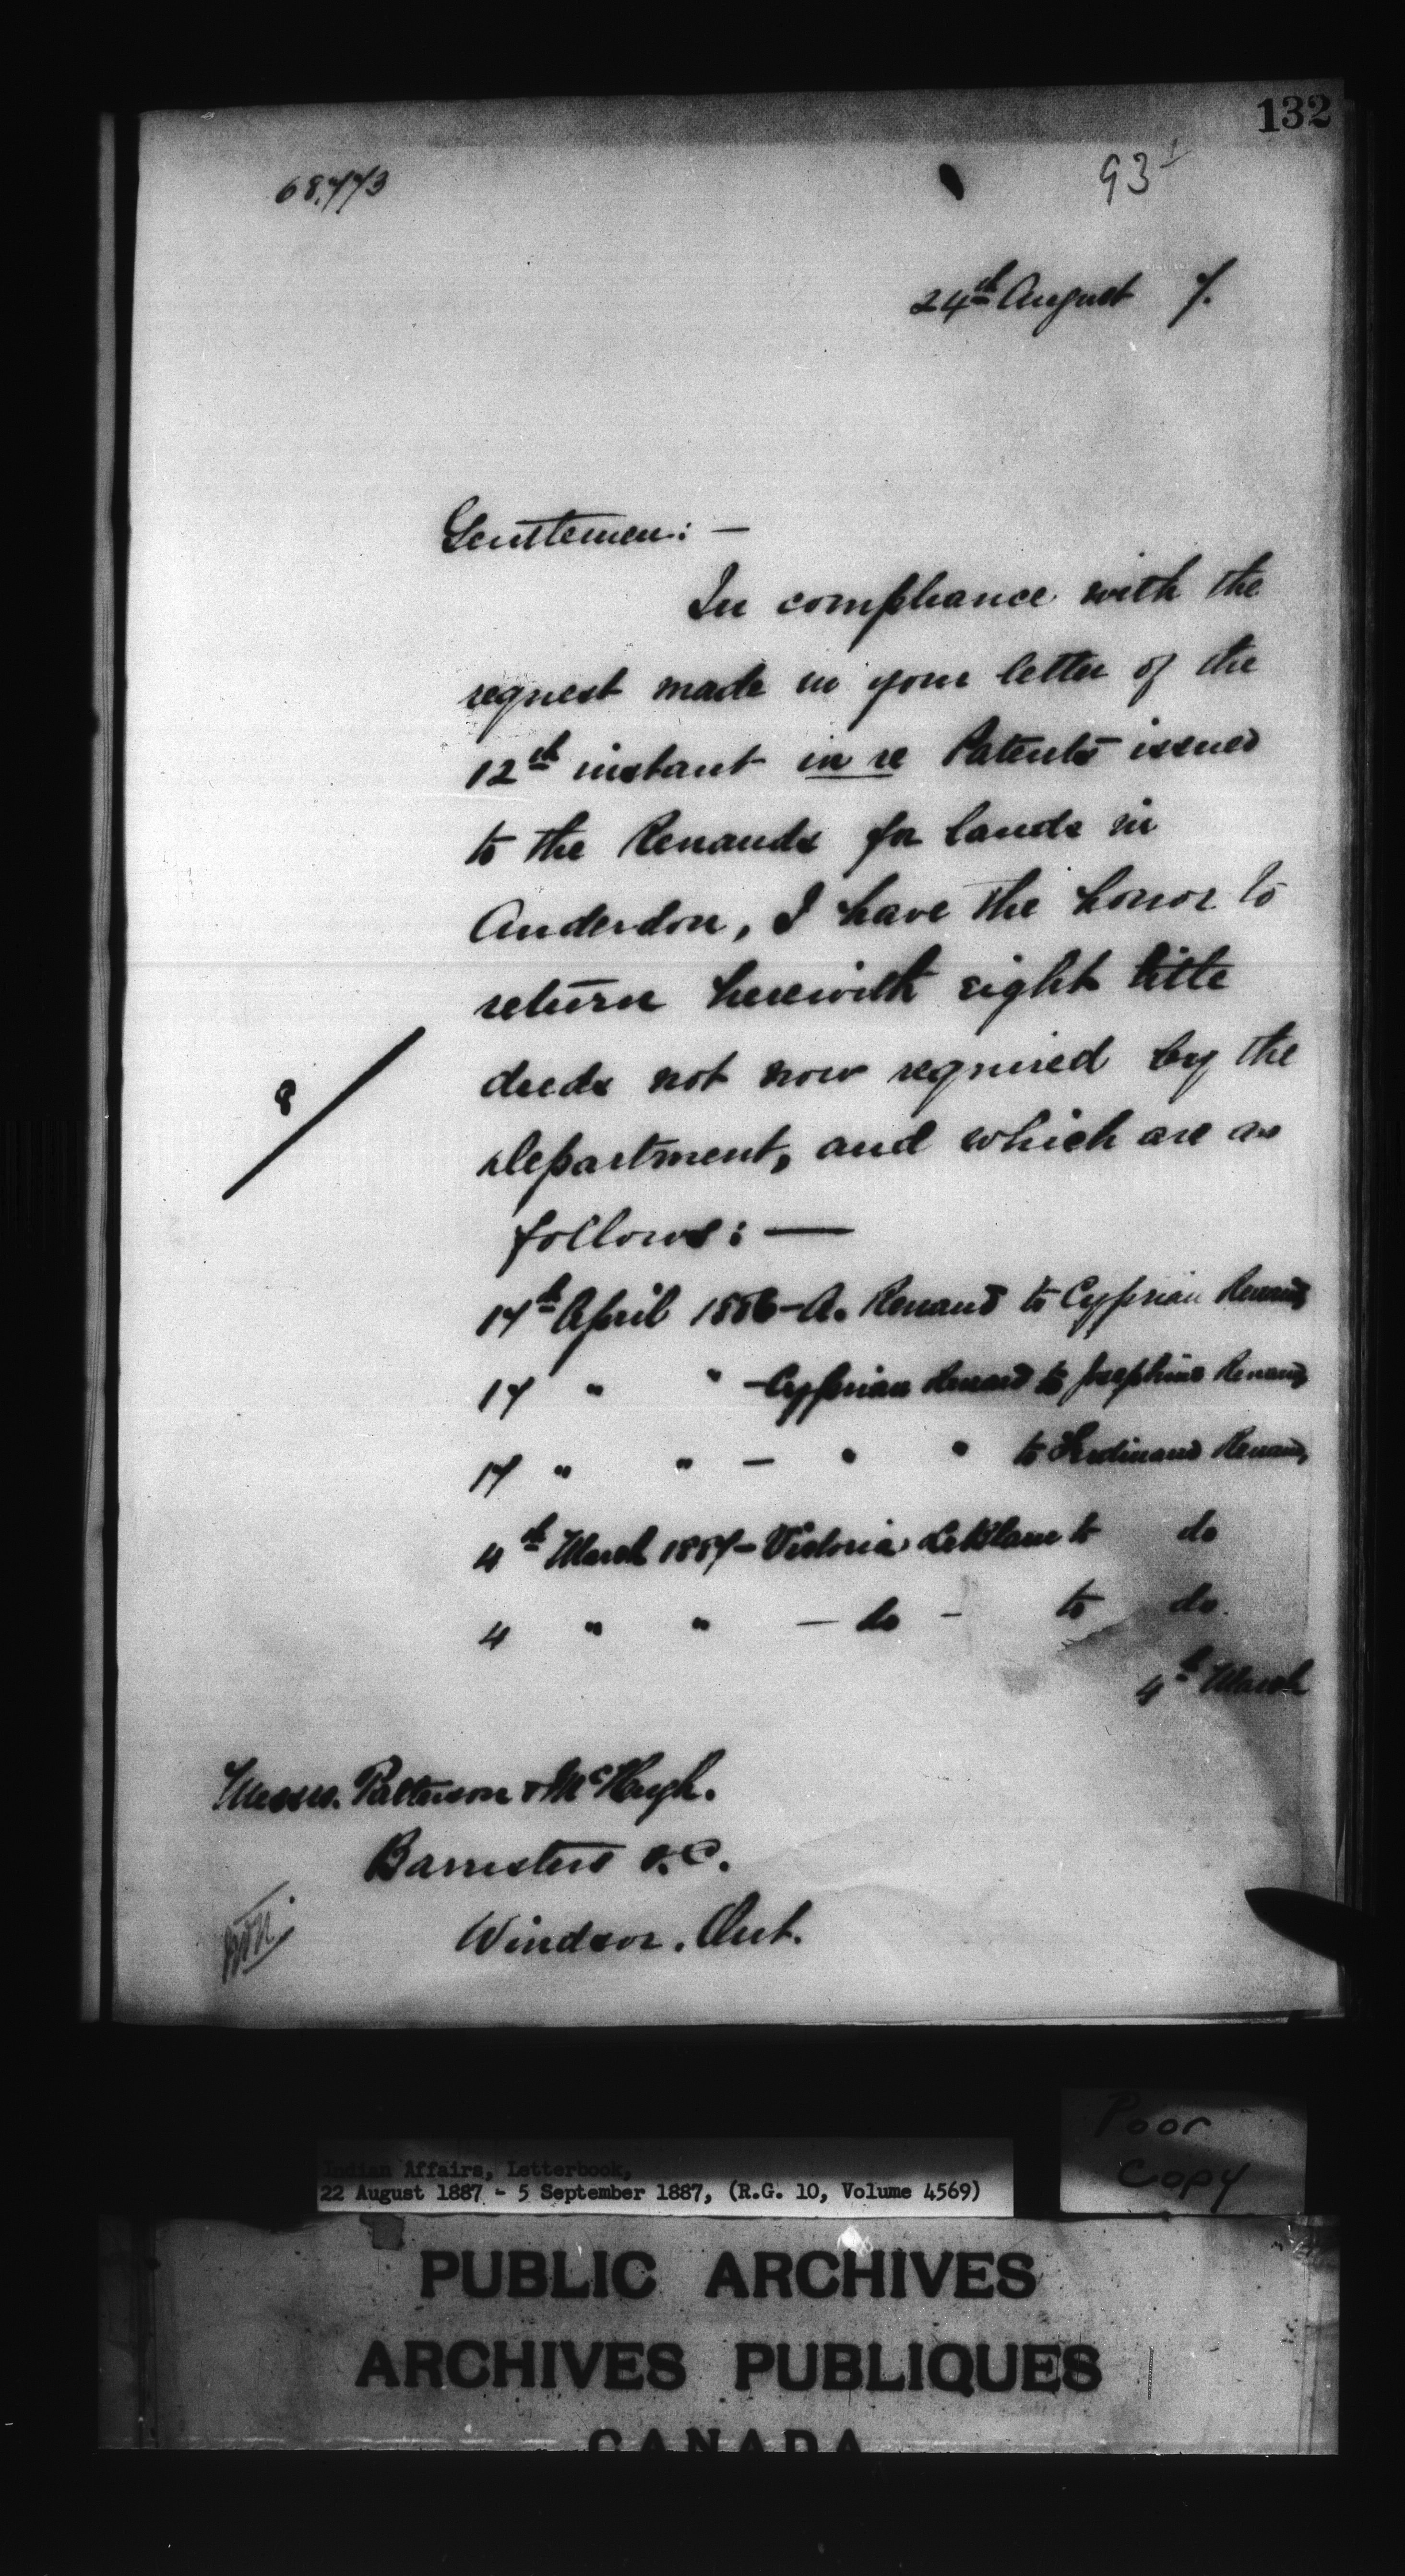 132
68,773
93
24th August 7.
Gentlemen: —
In compliance with the
request made in your letter of the
12th instant in re Patents issued
to the Renauds for lands in
Anderdon, I have the honor to
return herewith eight title
deeds not now required by the
8
Department, and which are as
follows: —
17th April 1886 - A. Renaud to Cyprian Renaud
17 " " - Cyprian Renaud to Josephine Renaud
17 " " — " " to Ferdinand Renaud
4th March 1887 - Victoria LeBlanc to do
4 " " — do - to do.
4th March
Messrs. Patterson & McHugh.
Barristers &.C.
Windsor. Ont.
Poor
Copy
Indian Affairs, Letterbook,
22 August 1887 - 5 September 1887, (R.G. 10, Volume 4569)
PUBLIC ARCHIVES
ARCHIVES PUBLIQUES
CANADA